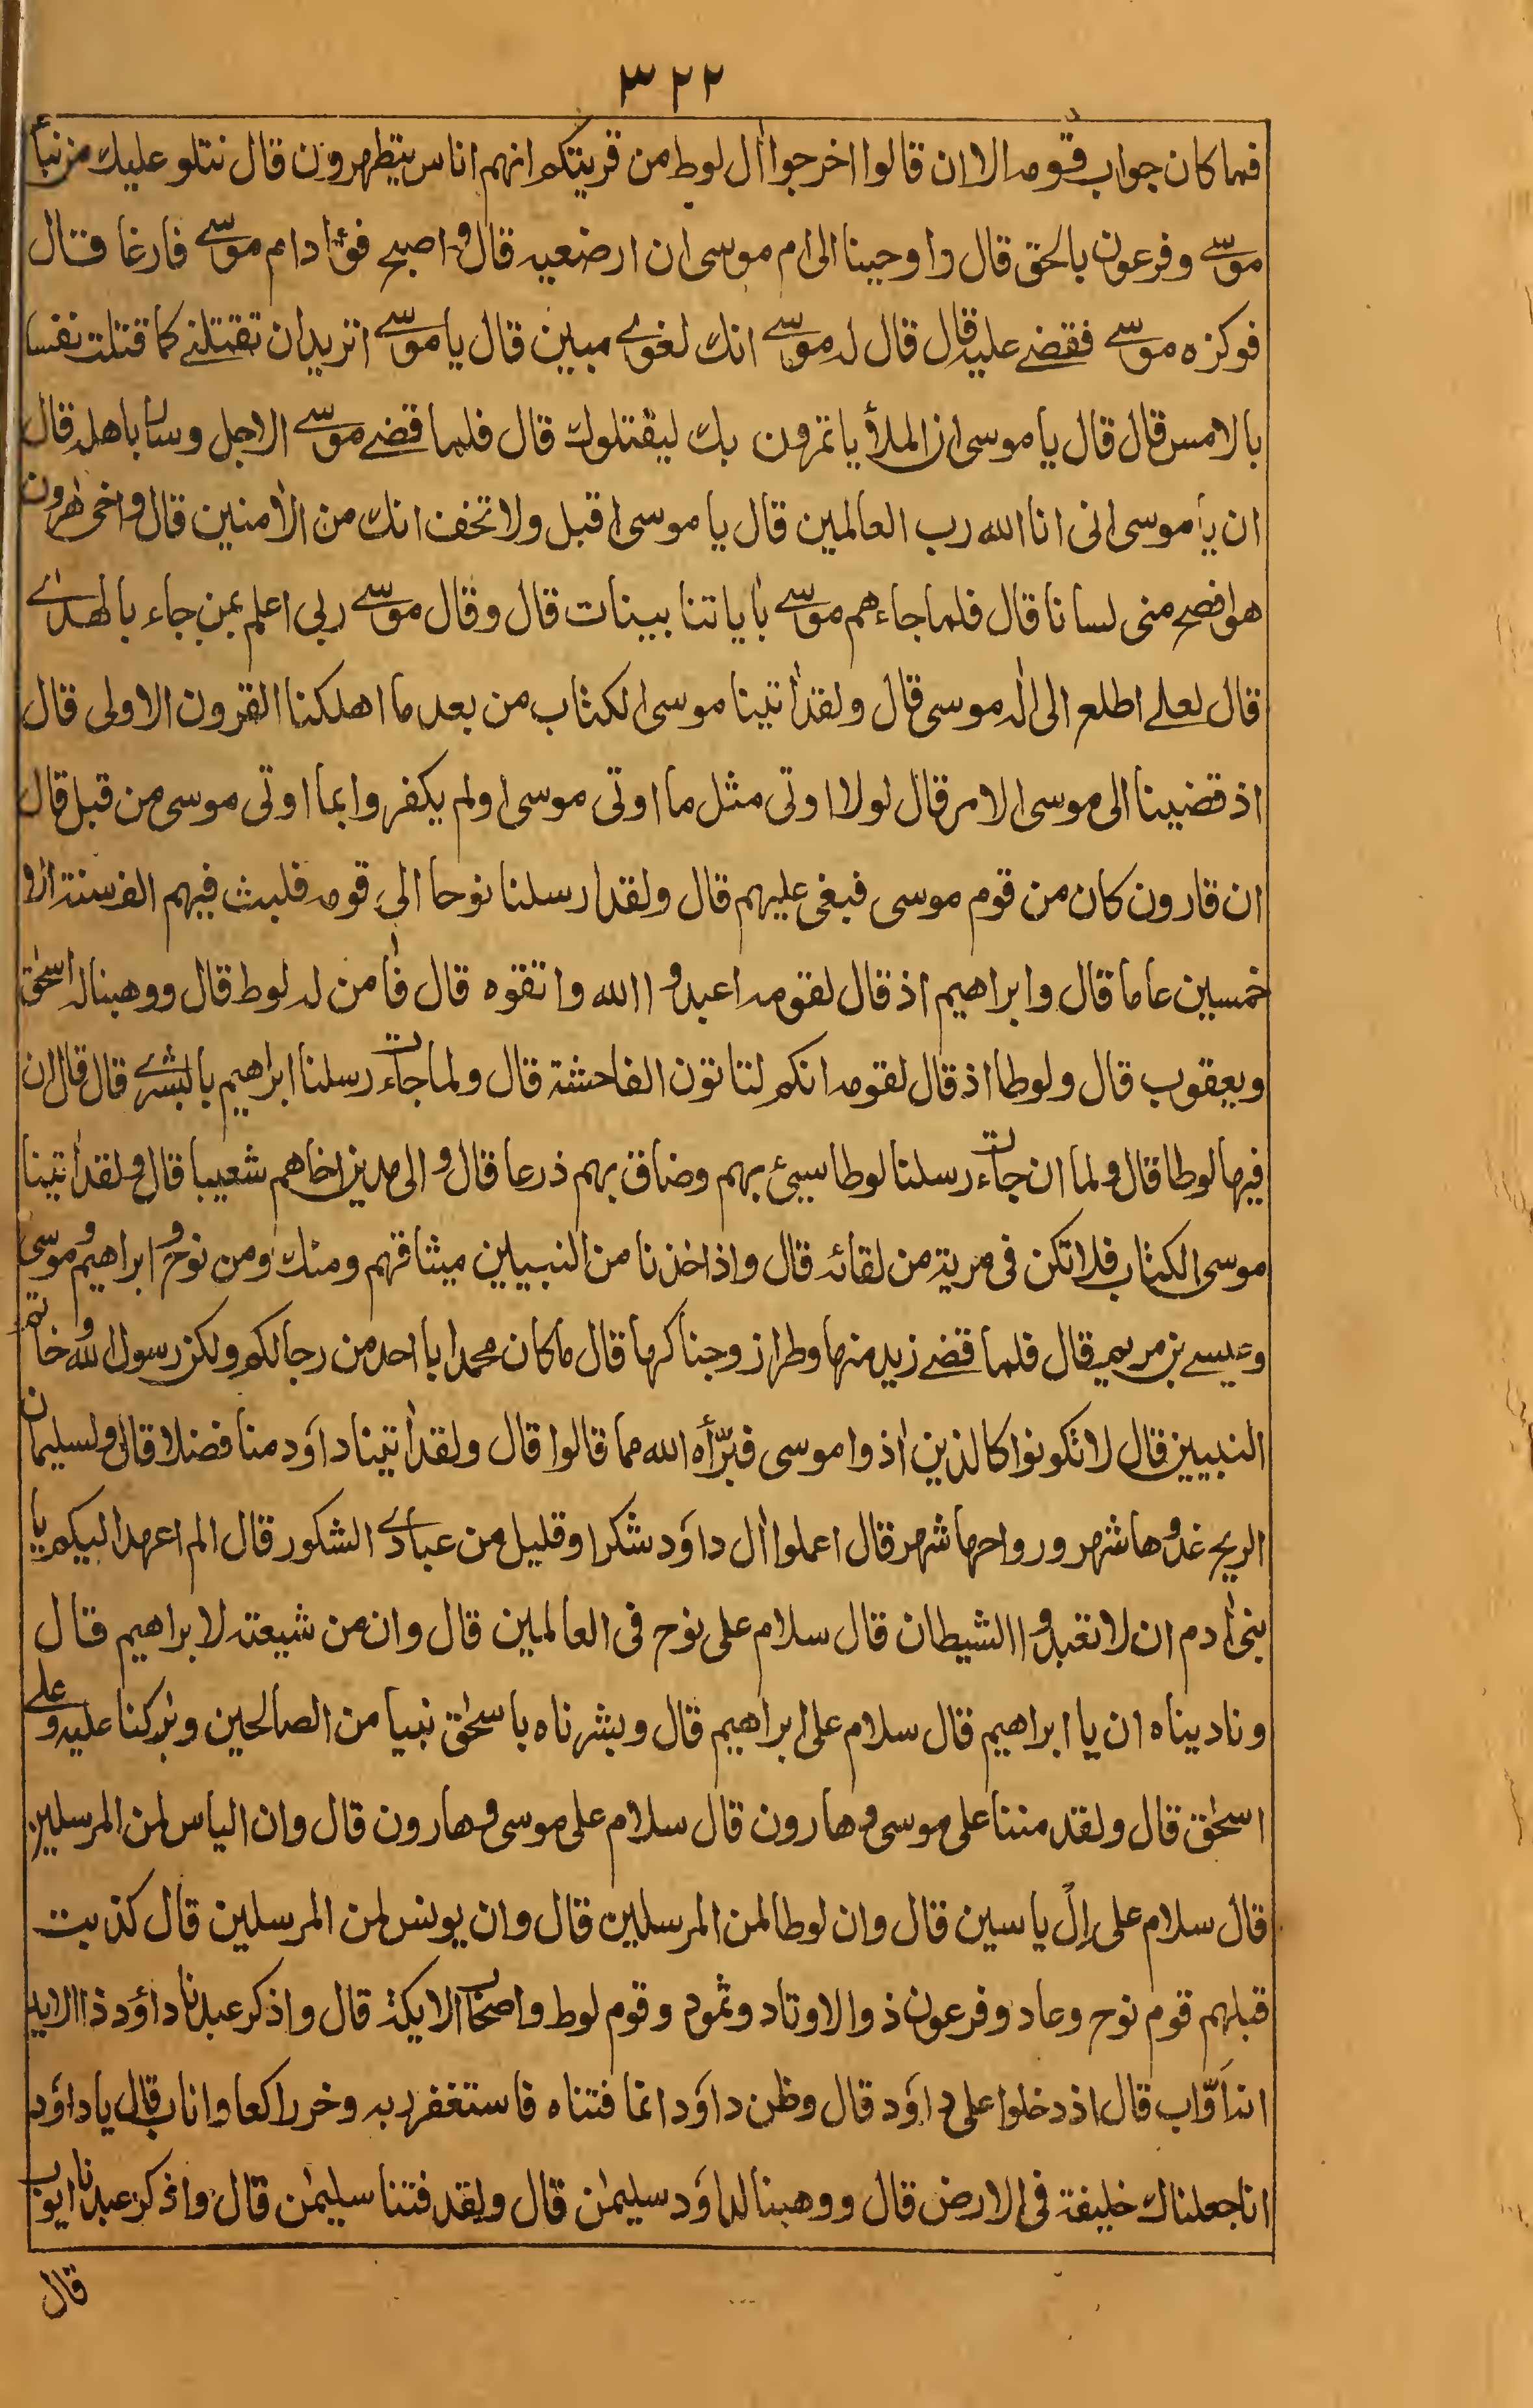 ٣٢٢
فما كان جواب قومه الا ان قالوا اخرجوا اٰل لوط من قريتكم انهم اناس يتطهرون قال نتلو عليك من نبأ
موسى وفرعون بالحق قال واوحينا الى ام موسى ان ارضعيه قال واصبح فؤاد ام موسى فارغا قال
فوكزه موسى فقضى عليه قال قال له موسى انك لغوى مبين قال يا موسى اتريد ان تقتلنى كما قتلت نفسا
بالامس قال قال يا موسى ان الملأ ياتمرون بك ليقتلوك قال فلما قضى موسى الاجل وسار باهله قال
ان يا موسى انى انا الله رب العالمين قال يا موسى اقبل ولا تخف انك من الاٰمنين قال واخى هٰرون
هو افصح منى لسانا قال فلما جاءهم موسى باٰياتنا بينات قال وقال موسى ربى اعلم بمن جاء بالهدى
قال لعلى اطلع الى اله موسى قال ولقد اٰتينا موسى الكتاب من بعد ما اهلكنا القرون الاولى قال
اذ قضينا الى موسى الامر قال لولا اوتى مثل ما اوتى موسى اولم يكفروا بما اوتى موسى من قبل قال
ان قارون كان من قوم موسى فبغى عليهم قال ولقد ارسلنا نوحا الى قومه فلبث فيهم الف سنة الا
خمسين عاما قال وابراهيم اذ قال لقومه اعبدوا الله واتقوه قال فاٰمن له لوط قال ووهبنا له اسحٰق
ويعقوب قال ولوطا اذ قال لقومه انكم لتاتون الفاحشة قال ولما جاءت رسلنا ابراهيم بالبشرى قال قال ان
فيها لوطا قال ولما ان جاءت رسلنا لوطا سيئ بهم وضاق بهم ذرعا قال والى مدين اخاهم شعيبا قال ولقد اٰتينا
موسى الكتاب فلا تكن فى مرية من لقائه قال واذ اخذنا من النبيين ميثاقهم ومنك ومن نوح وابراهيم وموسى
وعيسى بن مريم قال فلما قضى زيد منها وطرا زوجناكها قال ما كان محمد ابا احد من رجالكم ولكن رسول الله وخاتم
النبيين قال لا تكونوا كالذين اٰذوا موسى فبرّأه الله مما قالوا قال ولقد اٰتينا داود منا فضلا قال ولسليمان
الريح غدوها شهر ورواحها شهر قال اعملوا اٰل داود شكرا وقليل من عبادى الشكور قال الم اعهد اليكم يا
بنى اٰدم ان لا تعبدوا الشيطان قال سلام على نوح فى العالمين قال وان من شيعته لابراهيم قال
وناديناه ان يا ابراهيم قال سلام على ابراهيم قال وبشرناه باسحٰق نبيا من الصالحين وبٰركنا عليه وعلى
اسحٰق قال ولقد مننا على موسى وهارون قال سلام على موسى وهارون قال وان الياس لمن المرسلين
قال سلام على اِلْ ياسين قال وان لوطا لمن المرسلين قال وان يونس لمن المرسلين قال كذبت
قبلهم قوم نوح وعاد وفرعون ذو الاوتاد وثمود وقوم لوط واصحاب الايكة قال واذكر عبدنا داؤد ذا الايد
انه اوّاب قال اذ دخلوا على داود قال وظن داود انما فتناه فاستغفر ربه وخر راكعا واناب قال يا داود
انا جعلناك خليفة فى الارض قال ووهبنا لداود سليمٰن قال ولقد فتنا سليمٰن قال واذكر عبدنا ايوب
قال